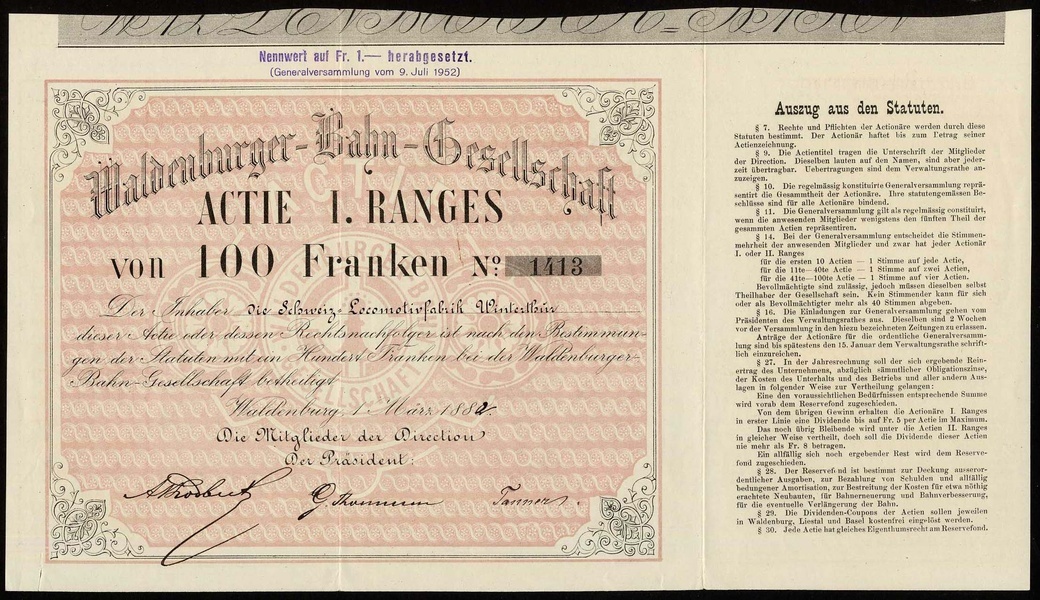 Nennwert auf Fr. 1.— herabgesetzt.
(Generalversammlung vom 9. Juli 1952)
Waldenburger-Bahn-Gesellschaft
ACTIE I. RANGES
von 100 Franken No. 1413
Der Inhaber die Schweiz. Locomotivfabrik Winterthur
dieser Actie oder dessen Rechtsnachfolger ist nach den Bestimmun-
gen der Statuten mit ein Hundert Franken bei der Waldenburger-
Bahn-Gesellschaft betheiligt.
Waldenburg, 1 März 1882.
Die Mitglieder der Direction
Der Präsident:
Tanner
Auszug aus den Statuten.
§ 7. Rechte und Pflichten der Actionäre werden durch diese
Statuten bestimmt. Der Actionär haftet bis zum Betrag seiner
Actienzeichnung.
§ 9. Die Actientitel tragen die Unterschrift der Mitglieder
der Direction. Dieselben lauten auf den Namen, sind aber jeder-
zeit übertragbar. Uebertragungen sind dem Verwaltungsrathe an-
zuzeigen.
§ 10. Die regelmässig konstituirte Generalversammlung reprä-
sentirt die Gesammtheit der Actionäre. Ihre statutengemässen Be-
schlüsse sind für alle Actionäre bindend.
§ 11. Die Generalversammlung gilt als regelmässig constituirt,
wenn die anwesenden Mitglieder wenigstens den fünften Theil der
gesammten Actien repräsentiren.
§ 14. Bei der Generalversammlung entscheidet die Stimmen-
mehrheit der anwesenden Mitglieder und zwar hat jeder Actionär
I. oder II. Ranges
für die ersten 10 Actien — 1 Stimme auf jede Actie,
für die 11te—40te Actie — 1 Stimme auf zwei Actien,
für die 41te—100te Actie — 1 Stimme auf vier Actien.
Bevollmächtigte sind zulässig, jedoch müssen dieselben selbst
Theilhaber der Gesellschaft sein. Kein Stimmender kann für sich
oder als Bevollmächtigter mehr als 40 Stimmen abgeben.
§ 16. Die Einladungen zur Generalversammlung gehen vom
Präsidenten des Verwaltungsrathes aus. Dieselben sind 2 Wochen
vor der Versammlung in den hiezu bezeichneten Zeitungen zu erlassen.
Anträge der Actionäre für die ordentliche Generalversamm-
lung sind bis spätestens den 15. Januar dem Verwaltungsrathe schrift-
lich einzureichen.
§ 27. In der Jahresrechnung soll der sich ergebende Rein-
ertrag des Unternehmens, abzüglich sämmtlicher Obligationszinse,
der Kosten des Unterhalts und des Betriebs und aller andern Aus-
lagen in folgender Weise zur Vertheilung gelangen:
Eine den voraussichtlichen Bedürfnissen entsprechende Summe
wird vorab dem Reservefond zugeschieden.
Von dem übrigen Gewinn erhalten die Actionäre I. Ranges
in erster Linie eine Dividende bis auf Fr. 5 per Actie im Maximum.
Das noch übrig Bleibende wird unter die Actien II. Ranges
in gleicher Weise vertheilt, doch soll die Dividende dieser Actien
nie mehr als Fr. 8 betragen.
Ein allfällig sich noch ergebender Rest wird dem Reserve-
fond zugeschieden.
§ 28. Der Reservefond ist bestimmt zur Deckung ausseror-
dentlicher Ausgaben, zur Bezahlung von Schulden und allfällig
bedungener Amortisation, zur Bestreitung der Kosten für etwa nöthig
erachtete Neubauten, für Bahnerneuerung und Bahnverbesserung,
für die eventuelle Verlängerung der Bahn.
§ 29. Die Dividenden-Coupons der Actien sollen jeweilen
in Waldenburg, Liestal und Basel kostenfrei eingelöst werden.
§ 30. Jede Actie hat gleiches Eigenthumsrecht am Reservefond.